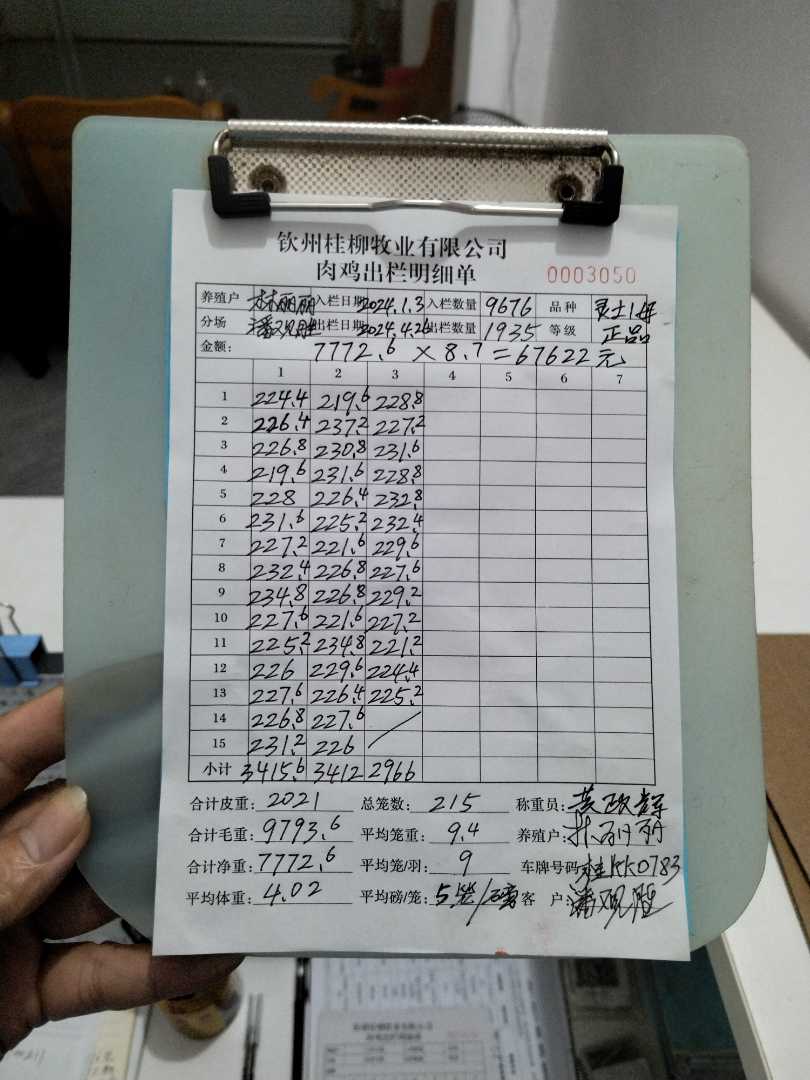 钦州桂柳牧业有限公司
肉鸡出栏明细单 0003050
养殖户 林丽丽 入栏日期 2024.1.3 入栏数量 9676 品种 灵土1号
分场 潘观胜 出栏日期 2024.4.26 出栏数量 1935 等级 正品
金额: 7772.6 × 8.7 = 67622元
1 2 3 4 5 6 7
1 224.4 219.6 228.8
2 226.4 237.2 227.2
3 226.8 230.8 231.6
4 219.6 231.6 228.8
5 228 226.4 232.8
6 231.6 225.2 232.4
7 227.2 221.6 229.6
8 232.4 226.8 227.6
9 234.8 226.8 229.2
10 227.6 221.6 227.2
11 225.2 234.8 221.2
12 226 229.6 224.4
13 227.6 226.4 225.2
14 226.8 227.6
15 231.2 226
小计 3415.6 3412 2966
合计皮重: 2021 总笼数: 215 称重员:
合计毛重: 9793.6 平均笼重: 9.4 养殖户: 林丽丽
合计净重: 7772.6 平均笼/羽: 9 车牌号码: 桂KK0783
平均体重: 4.02 平均磅/笼: 5笼/磅 客户: 潘观胜